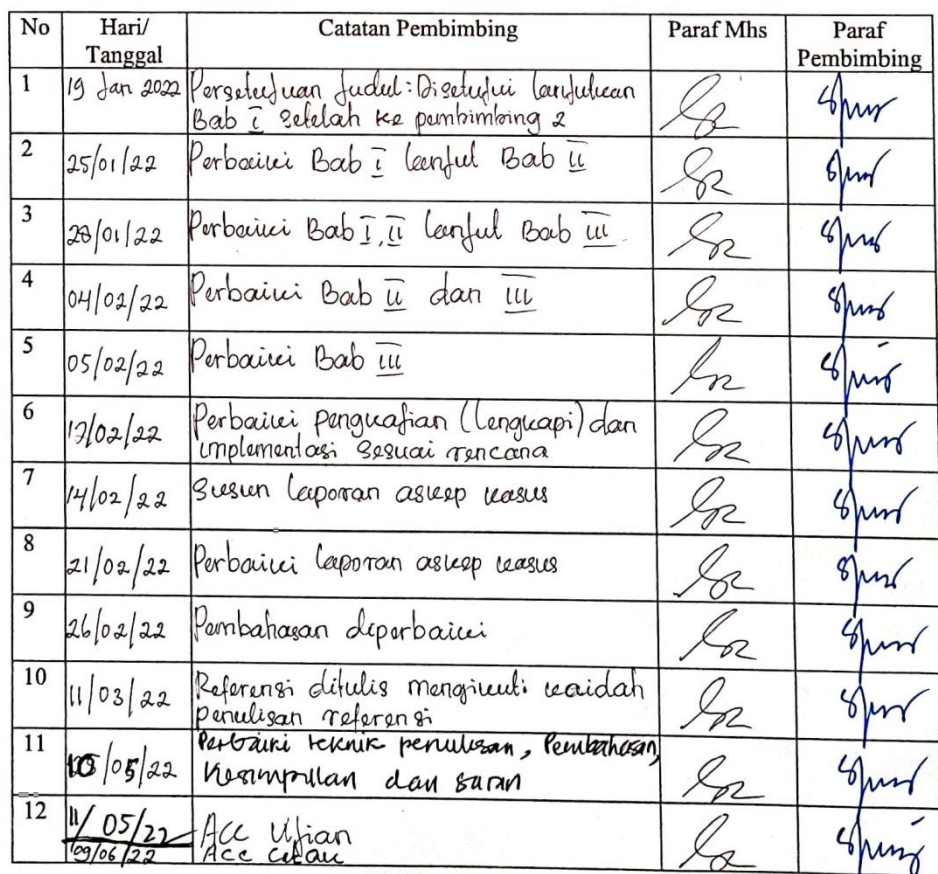 No Hari/ Tanggal Catatan Pembimbing Paraf Mhs Paraf Pembimbing
1 19 Jan 2022 Persetujuan Judul: Disetujui lanjutkan
Bab I setelah ke pembimbing 2
2 25/01/22 Perbaiki Bab I lanjut Bab II
3 28/01/22 Perbaiki Bab I, II lanjut Bab III
4 04/02/22 Perbaiki Bab II dan III
5 05/02/22 Perbaiki Bab III
6 /02/22 Perbaiki pengkajian (lengkapi) dan
implementasi sesuai rencana
7 14/02/22 Susun laporan askep kasus
8 21/02/22 Perbaiki laporan askep kasus
9 26/02/22 Pembahasan diperbaiki
10 11/03/22 Referensi ditulis mengikuti kaidah
penulisan referensi
11 /05/22 Perbaiki teknik penulisan, Pembahasan,
Kesimpulan dan saran
12 11/05/22 Acc Ujian
09/06/22 Acc Cetak